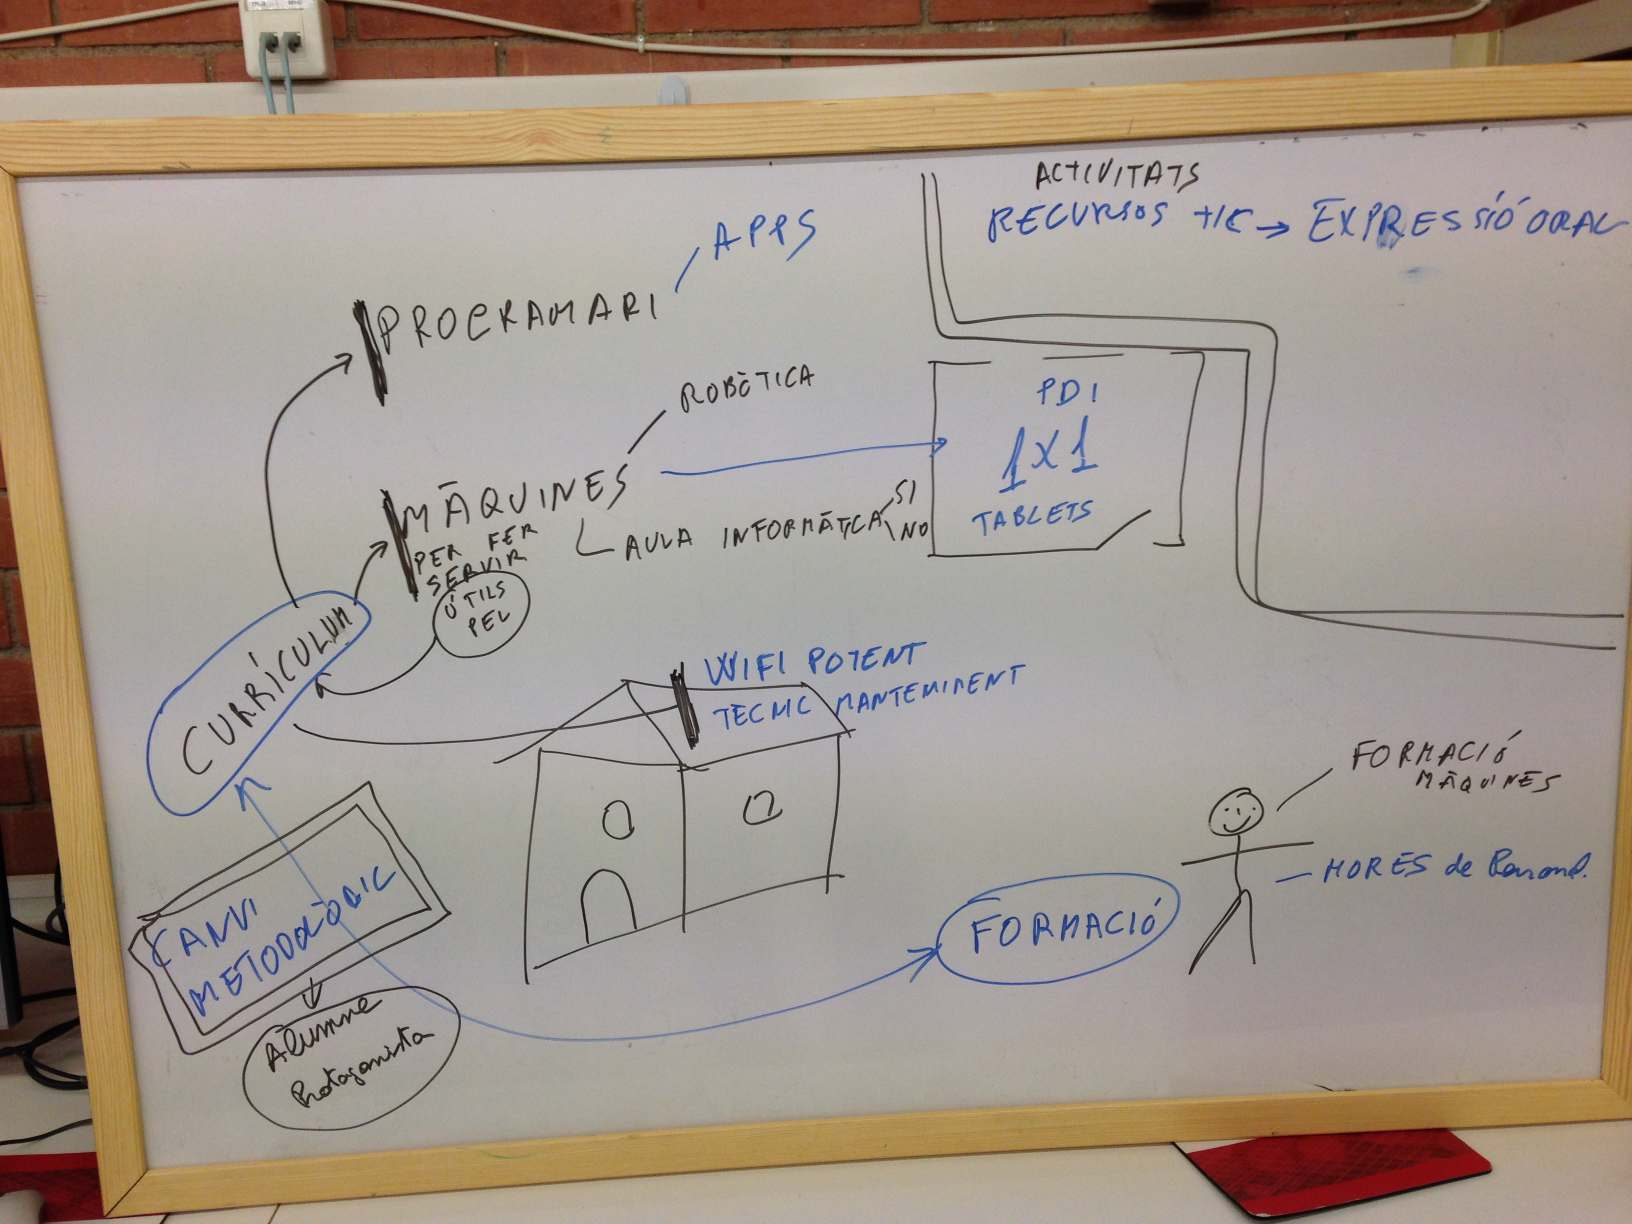 ACTIVITATS
RECURSOS TIC → EXPRESSIÓ ORAL
APPS
PROGRAMARI
ROBÒTICA
MÀQUINES
PER FER
SERVIR
ÚTILS
PEL
AULA INFORMÀTICA
SI
NO
PDI
1x1
TABLETS
CURRÍCULUM
WIFI POTENT
TECNIC MANTENIMENT
CANVI
METODOLÒGIC
Alumne
Protagonista
FORMACIÓ
FORMACIÓ
MÀQUINES
HORES de